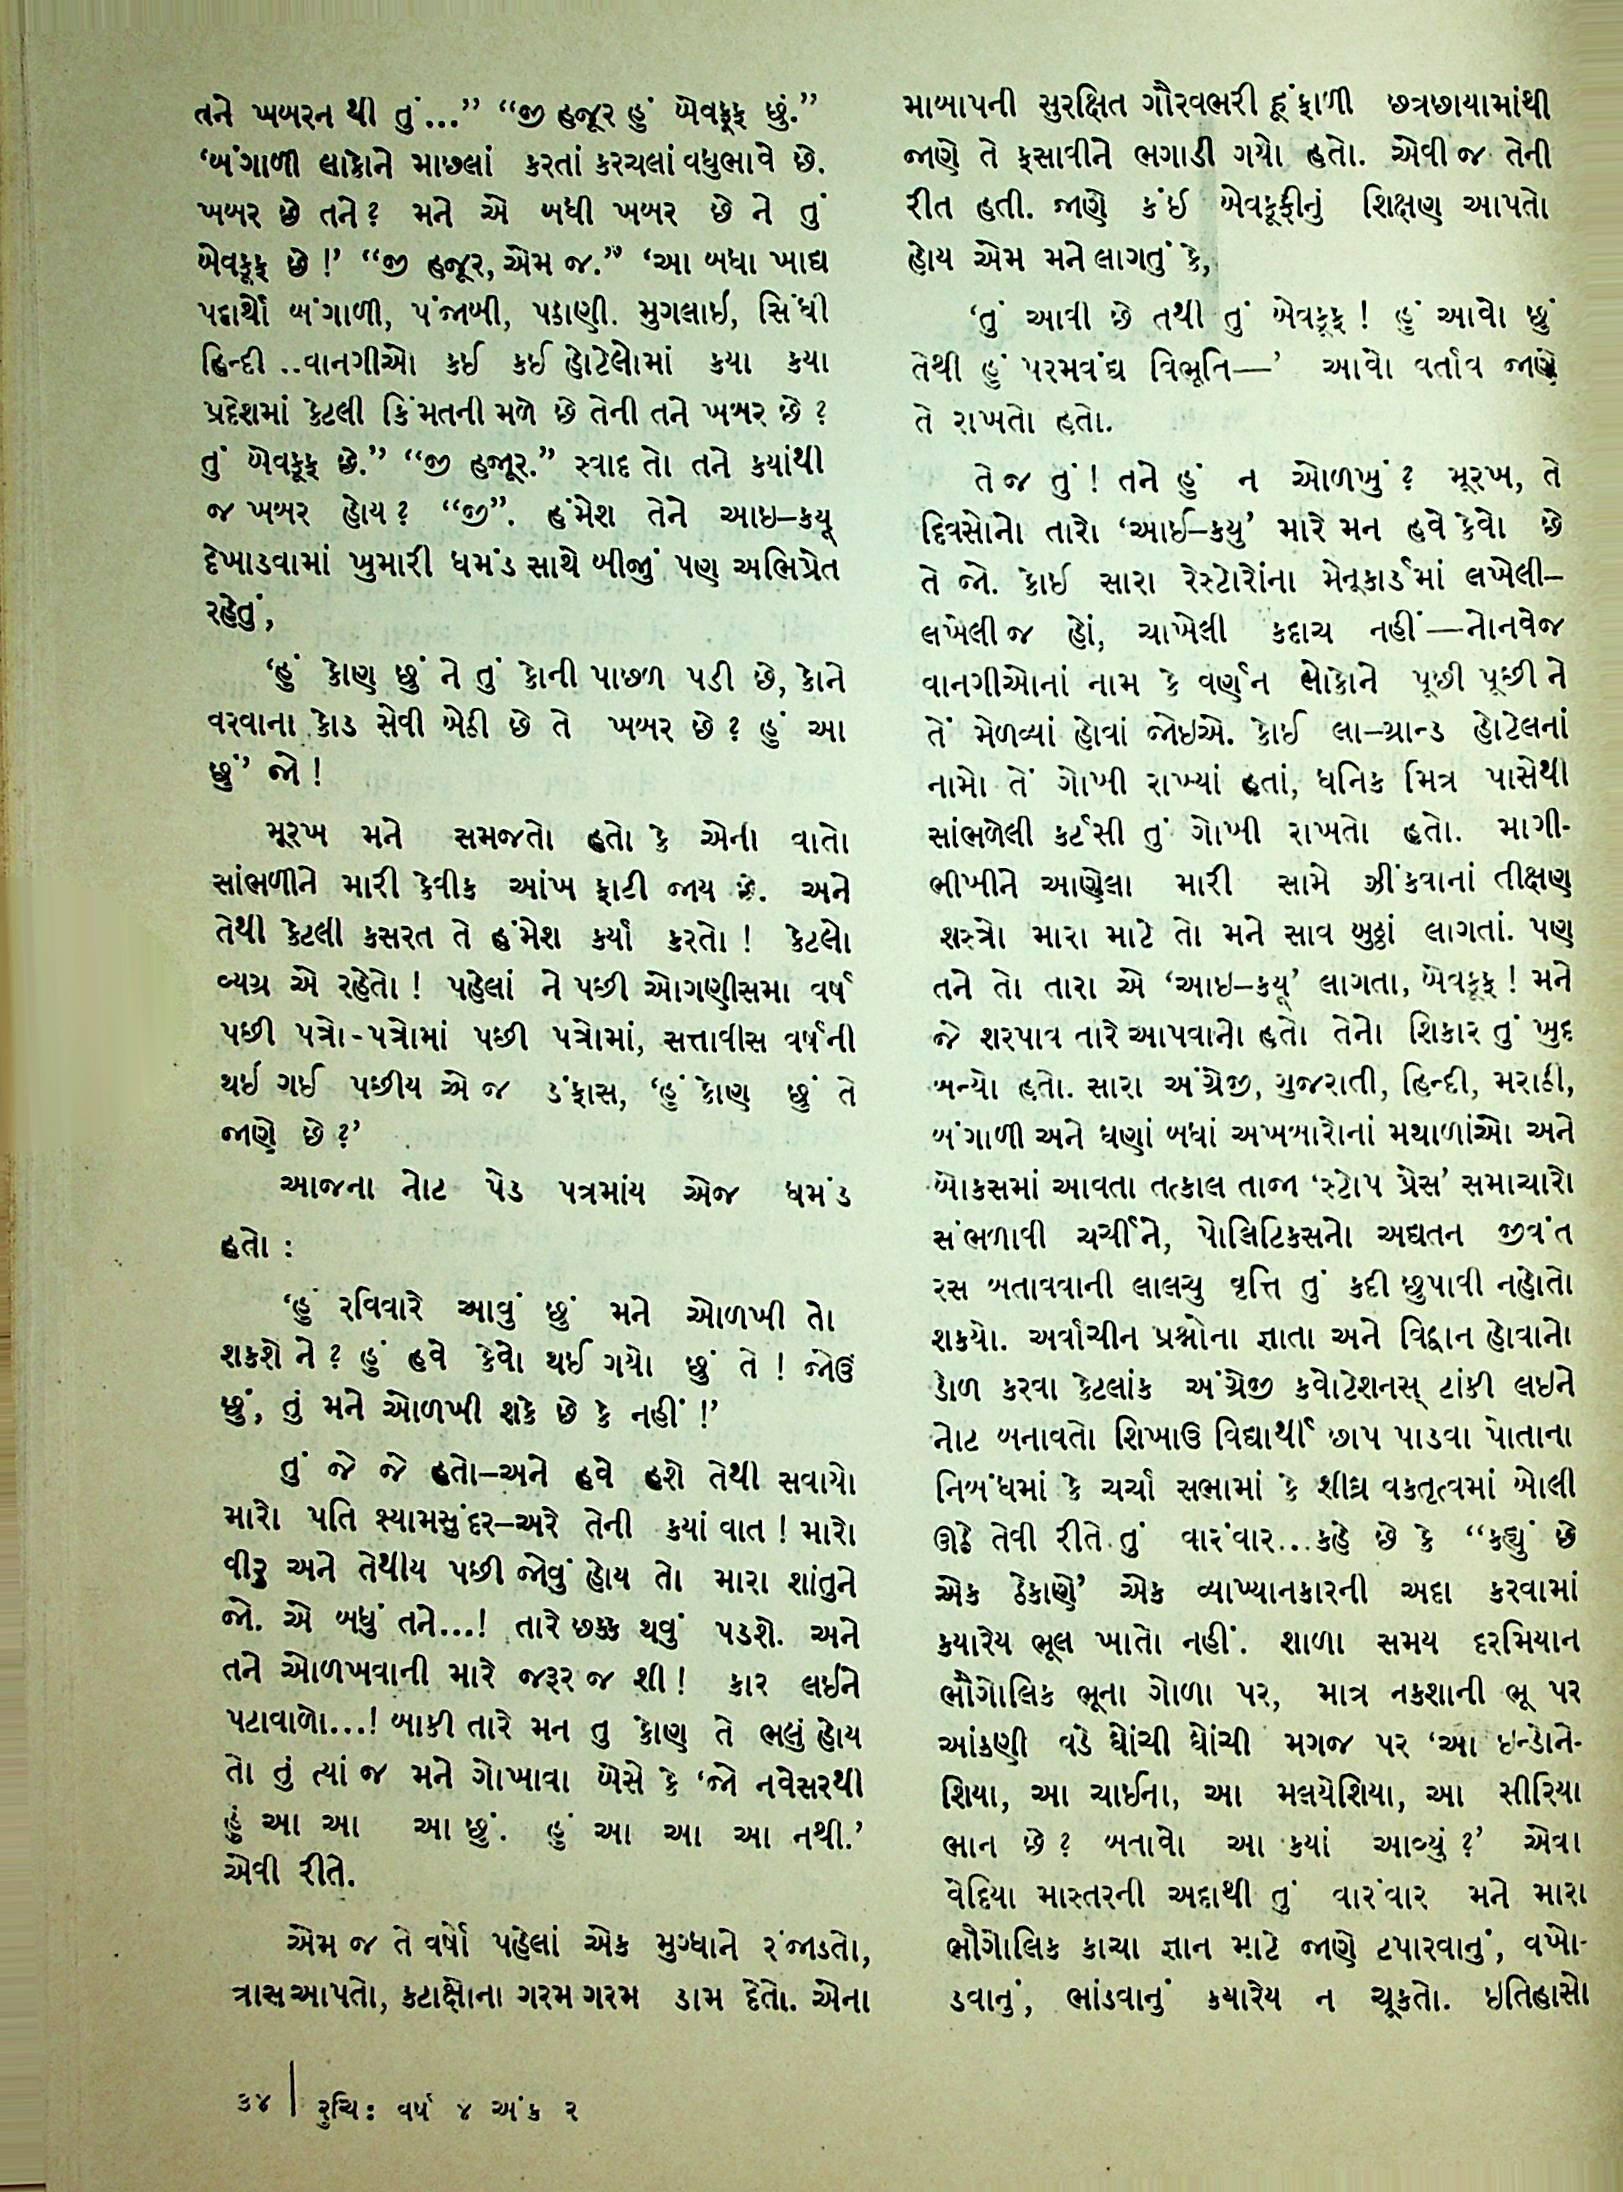 તને ખબરન થી તું...” “જી હજૂર હું બેવકૂફ છું.”
‘બંગાળી લોકોને માછલાં કરતાં કરચલાં વધુભાવે છે.
ખબર છે તને? મને એ બધી ખબર છે ને તું
બેવકૂફ છે!’ “જી હજૂર, એમ જ.” ‘આ બધા ખાદ્ય
પદાર્થો બંગાળી, પંજાબી, પઠાણી. મુગલાઇ, સિંધી
હિન્દી ..વાનગીઓ કઈ કઈ હોટેલોમાં કયા કયા
પ્રદેશમાં કેટલી કિંમતની મળે છે તેની તને ખબર છે?
તું બેવકૂફ છે.” “જી હજૂર.” સ્વાદ તો તને કયાંથી
જ ખબર હોય? “જી”. હંમેશ તેને આઇ–કયૂ
દેખાડવામાં ખુમારી ઘમંડ સાથે બીજું પણ અભિપ્રેત
રહેતું,
‘હું કોણ છું ને તું કોની પાછળ પડી છે, કોને
વરવાના કોડ સેવી બેઠી છે તે ખબર છે? હું આ
છું’ જો!
મૂરખ મને સમજતો હતો કે એની વાતો
સાંભળીને મારી કેવીક આંખ ફાટી જાય છે. અને
તેથી કેટલી કસરત તે હંમેશ કર્યાં કરતો! કેટલો
વ્યગ્ર એ રહેતો! પહેલાં ને પછી ઓગણીસમા વર્ષ
પછી પત્રો-પત્રોમાં પછી પત્રોમાં, સત્તાવીસ વર્ષની
થઇ ગઈ પછીય એ જ ડંફાસ, ‘હું કોણ છું તે
જાણે છે?’
આજના નોટ પેડ પત્રમાંય એજ ઘમંડ
હતો :
‘હું રવિવારે આવું છું મને ઓળખી તો
શકશે ને? હું હવે કેવો થઈ ગયો છું તે! જોઉં
છું, તું મને ઓળખી શકે છે કે નહીં!’
તું જે જે હતો–અને હવે હશે તેથી સવાયો
મારો પતિ શ્યામસુંદર–અરે તેની કયાં વાત! મારો
વીરુ અને તેથીય પછી જોવું હોય તો મારા શાંતુને
જો. એ બધું તને...! તારે છક્ક થવું પડશે. અને
તને ઓળખવાની મારે જરૂર જ શી! કાર લઈને
પટાવાળો...! બાકી તારે મન તુ કોણ તે ભલું હોય
તો તું ત્યાં જ મને ગોખાવા બેસે કે ‘જો નવેસરથી
હું આ આ આ છું. હું આ આ આ નથી.’
એવી રીતે.
એમ જ તે વર્ષો પહેલાં એક મુગ્ધાને રંજાડતો,
ત્રાસ આપતો, કટાક્ષોના ગરમ ગરમ ડામ દેતો. એના
૩૪ | રુચિ: વર્ષ ૪ અંક ૨
માબાપની સુરક્ષિત ગૌરવભરી હૂંફાળી છત્રછાયામાંથી
જાણે તે ફસાવીને ભગાડી ગયો હતો. એવી જ તેની
રીત હતી. જાણે કંઈ બેવકૂફીનું શિક્ષણ આપતો
હોય એમ મને લાગતું કે,
‘તું આવી છે તથી તું બેવકૂફ! હું આવો છું
તેથી હું પરમવંદ્ય વિભૂતિ—’ આવો વર્તાવ જાણે
તે રાખતો હતો.
તે જ તું! તને હું ન ઓળખું? મૂરખ, તે
દિવસોનો તારો ‘આઈ–કયુ’ મારે મન હવે કેવો છે
તે જો. કોઈ સારા રેસ્ટોરાંના મેનૂકાર્ડમાં લખેલી–
લખેલી જ હોં, ચાખેલી કદાચ નહીં—નોનવેજ
વાનગીઓનાં નામ કે વર્ણન લોકોને પૂછી પૂછી ને
તેં મેળવ્યાં હોવાં જોઇએ. કોઈ લા–ગ્રાન્ડ હોટેલનાં
નામો તેં ગોખી રાખ્યાં હતાં, ધનિક મિત્ર પાસેથી
સાંભળેલી કર્ટસી તું ગોખી રાખતો હતો. માગી-
ભીખીને આણેલા મારી સામે ઝીંકવાનાં તીક્ષણ
શસ્ત્રો મારા માટે તો મને સાવ બુઠ્ઠાં લાગતાં. પણ
તને તો તારા એ ‘આઇ–કયૂ’ લાગતા, બેવકૂફ! મને
જે શરપાત્ર તારે આપવાનો હતો તેનો શિકાર તું ખુદ
બન્યો હતો. સારા અંગ્રેજી, ગુજરાતી, હિન્દી, મરાઠી,
બંગાળી અને ઘણાં બધાં અખબારોનાં મથાળાંઓ અને
બોકસમાં આવતા તત્કાલ તાજા ‘સ્ટોપ પ્રેસ’ સમાચારો
સંભળાવી ચર્ચીને, પોલિટિકસનો અદ્યતન જીવંત
રસ બતાવવાની લાલચુ વૃત્તિ તું કદી છુપાવી નહોતો
શકયો. અર્વાચીન પ્રશ્નોના જ્ઞાતા અને વિદ્વાન હોવાનો
ડોળ કરવા કેટલાંક અંગ્રેજી કવોટેશનસ્ ટાંકી લઇને
નોટ બનાવતો શિખાઉ વિદ્યાર્થી છાપ પાડવા પોતાના
નિબંધમાં કે ચર્ચા સભામાં કે શીઘ્ર વકતૃત્વમાં બોલી
ઊઠે તેવી રીતે તું વારંવાર...કહે છે કે “કહ્યું છે
એક ઠેકાણે’ એક વ્યાખ્યાનકારની અદા કરવામાં
કયારેય ભૂલ ખાતો નહીં. શાળા સમય દરમિયાન
ભૌગોલિક ભૂના ગોળા પર, માત્ર નકશાની ભૂ પર
આંકણી વડે ઘોંચી ઘોંચી મગજ પર ‘આ ઇન્ડોને-
શિયા, આ ચાઈના, આ મલયેશિયા, આ સીરિયા
ભાન છે? બતાવો આ કયાં આવ્યું?’ એવા
વેદિયા માસ્તરની અદાથી તું વારંવાર મને મારા
ભૌગોલિક કાચા જ્ઞાન માટે જાણે ટપારવાનું, વખો-
ડવાનું, ભાંડવાનું કયારેય ન ચૂકતો. ઇતિહાસો